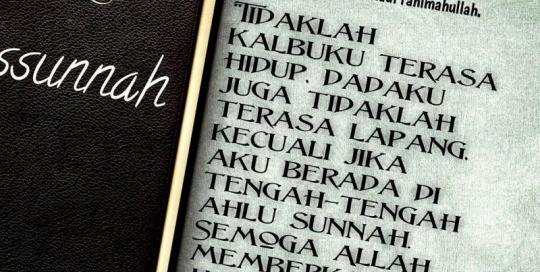 ssunnah
rahimahullah.
TIDAKLAH
KALBUKU TERASA
HIDUP. DADAKU
JUGA TIDAKLAH
TERASA LAPANG.
KECUALI JIKA
AKU BERADA DI
TENGAH-TENGAH
AHLU SUNNAH.
SEMOGA ALLAH